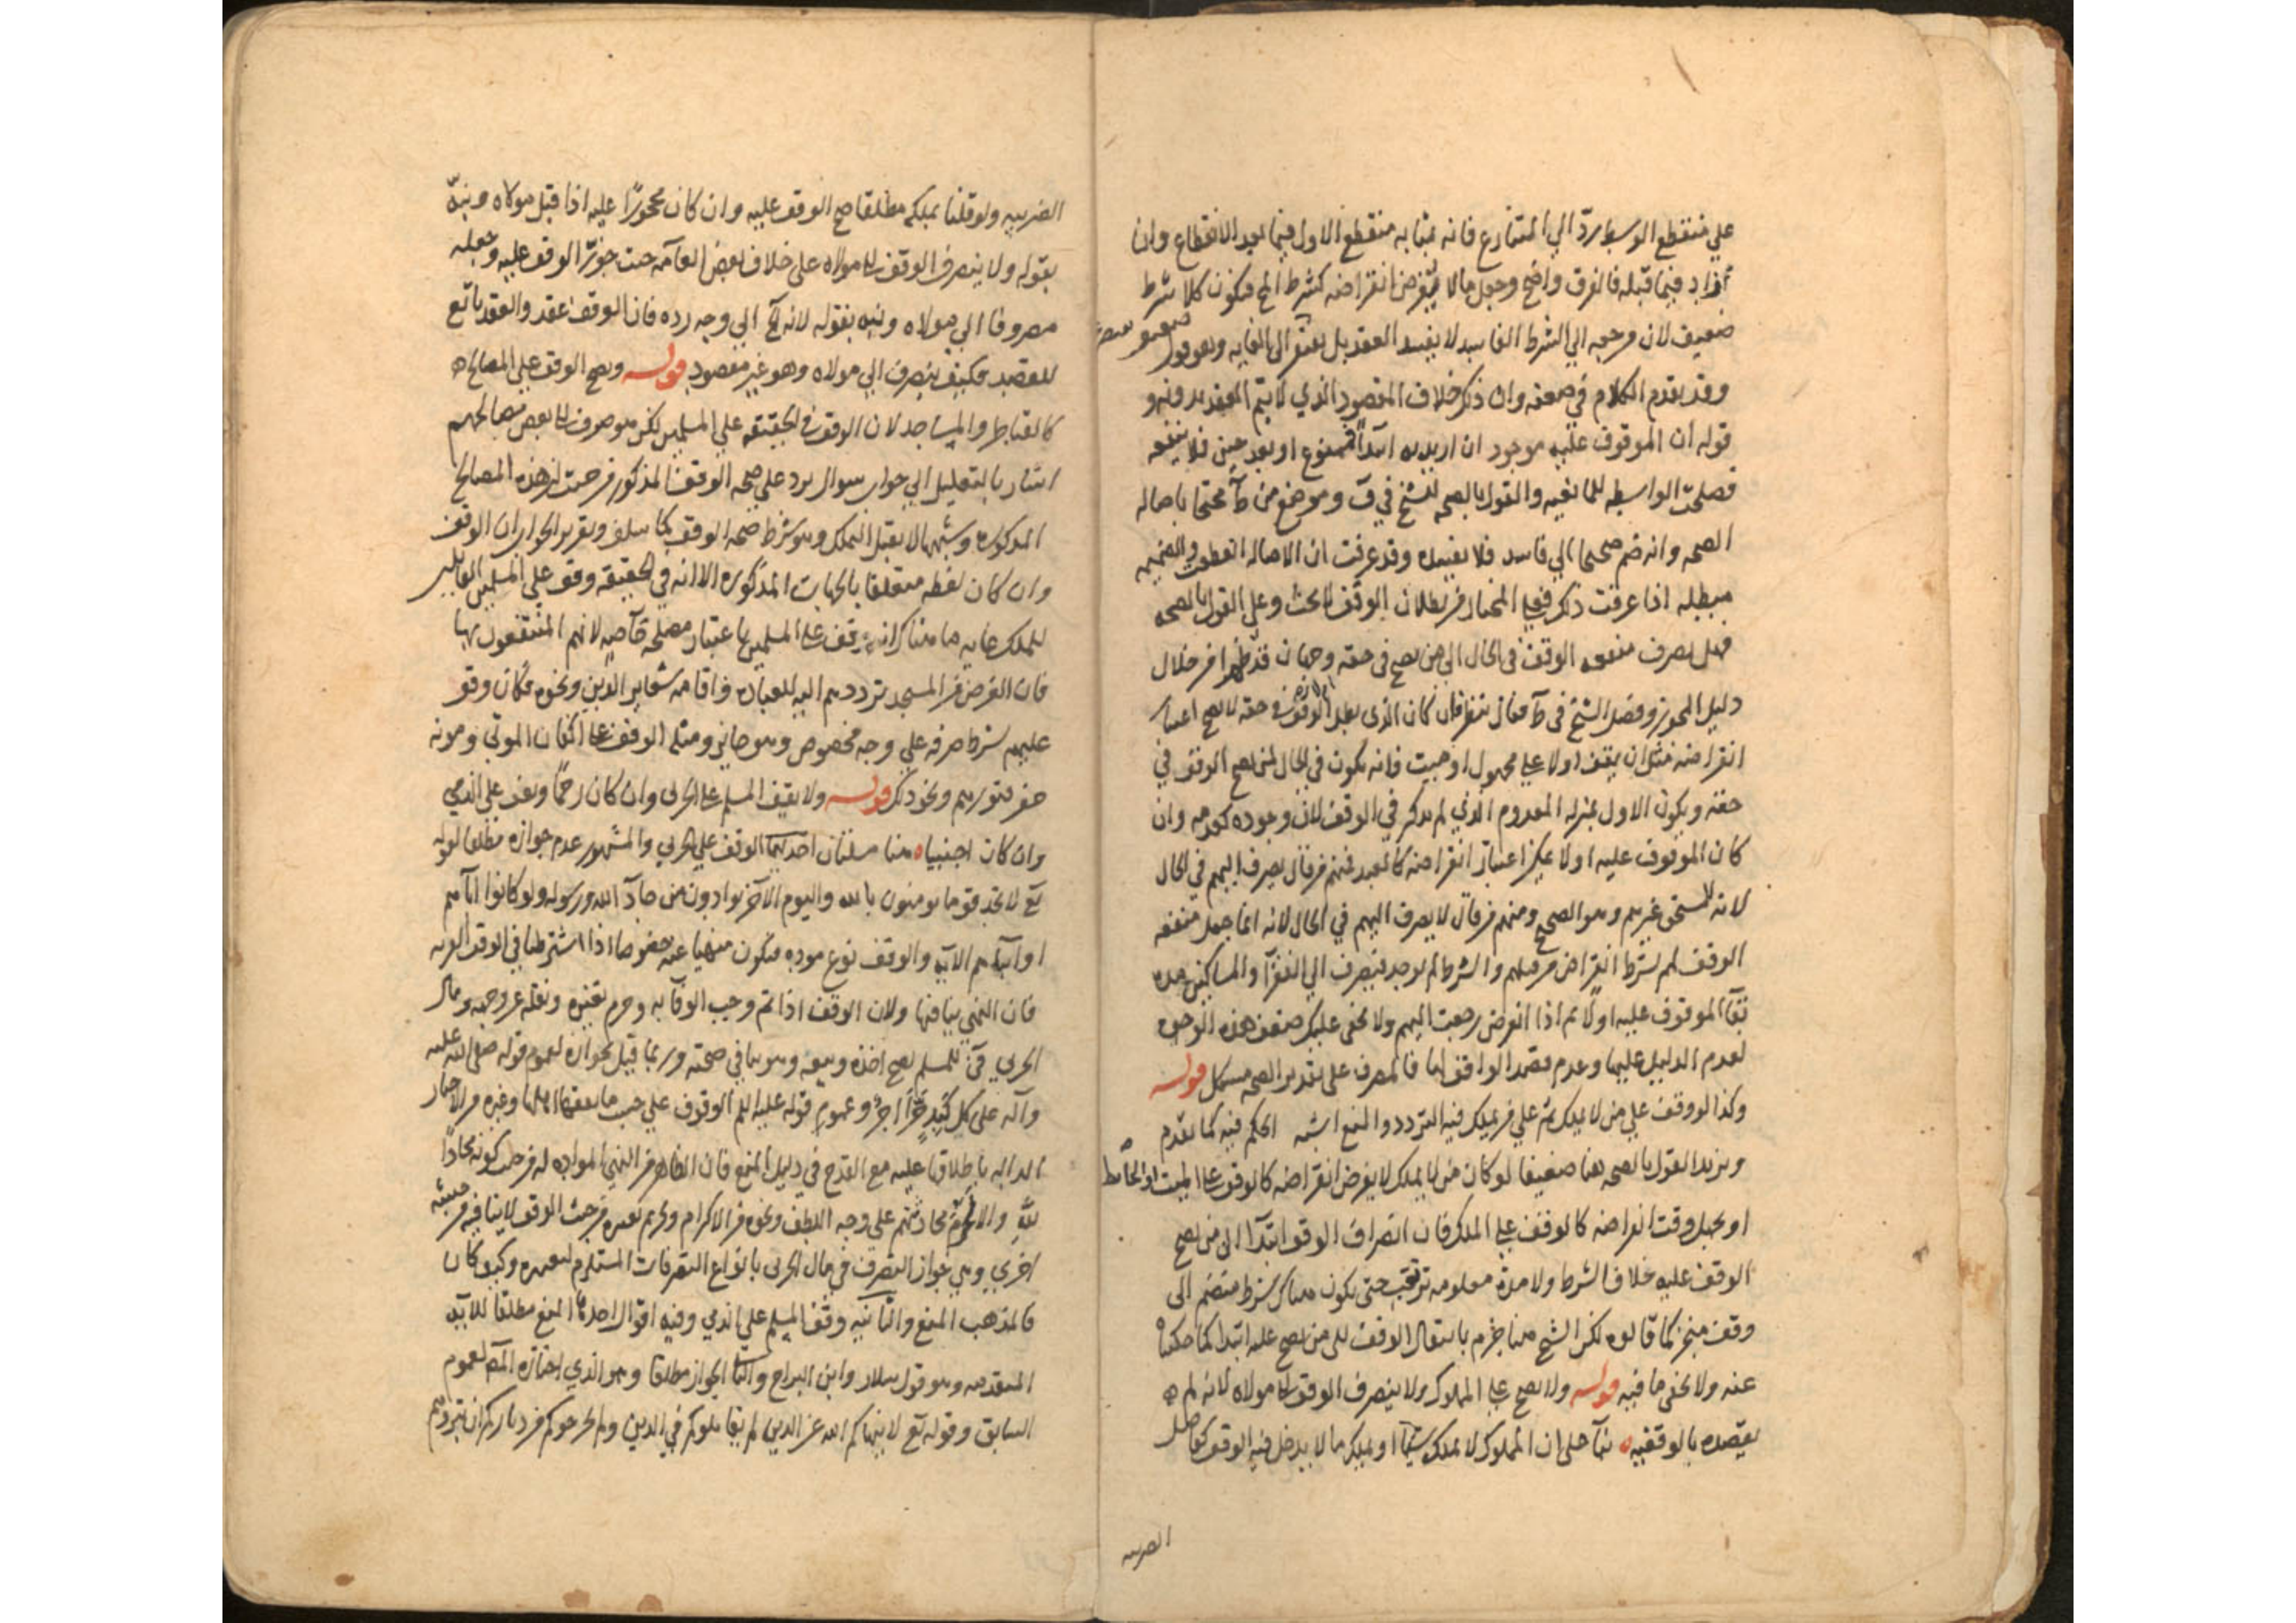 على منقطع الوسط ردّ الى المتنازع فانه بمثابه منقطع الاول فيما بعد الانقطاع وان
زاد فيما قبله فالفرق واضح وجعل مالا يفرض انقراضه كشرط الخ فيكون كلا شرط
ضعيف لان مرجعه الى الشرط الفاسد لا يفسد العقد بل
وقد تقدم الكلام في ضعفه وان ذكر خلاف المقصود الذي لا يتم العقد بدونه و
قوله ان الموقوف عليه موجود ان اريد به ابتداً فممنوع او بعد حين فلا ينفعه
فصلحت الواسطه للمانعيه والقول بالصحه للشيخ في ف وموضع من ط محتجا باصاله
الصحه وانه ضم صحيحا الى فاسد فلا يفسده وقد عرفت ان الاصاله انقطعت والضميمه
مبطله اذا عرفت ذلك فعلى المختار من بطلان الوقف لا بحث وعلى القول بالصحه
فهل يصرف منفعه الوقف في الحال الى من يصح في حقه وجهان قد ظهرا من خلال
دليل المجوز وفصل الشيخ في ط فقال ينظر فان كان الذي بطل الوقف في حقه لا يصح اعتبار
انقراضه مثل ان يقف اولا على مجهول او ميت فانه يكون في الحال لمن يصح الوقف في
حقه ويكون الاول بمنزله المعدوم الذي لم يذكر في الوقف لان وجوده كعدمه وان
كان الموقوف عليه اولا يمكن اعتبار انقراضه كالعبد فمنهم من قال يصرف اليهم في الحال
لانه لا مستحق غيرهم وهو الصحيح ومنهم من قال لا يصرف اليهم في الحال لانه انما جعل منفعه
الوقف لهم بشرط انقراض من قبلهم والشرط لم يوجد فيصرف الى الفقرآ والمساكين مده
بقآ الموقوف عليه اولا ثم اذا انقرض رجعت اليهم ولا يخفى عليك ضعف هذه الوجوه
لعدم الدليل عليها وعدم قصد الواقف لها فالمصرف على تقدير الصحه مشكل قوله
وكذا لو وقف على من لا يملك ثم على من يملك فيه التردد والمنع اشبه الحكم فيه كما تقدم
ويزيد القول بالصحه هنا ضعيفا لو كان من لا يملك لا يفرض انقراضه كالوقف على الميت او الحائط
او يجهل وقت انقراضه كالوقف على الملك فان انصراف الوقف ابتدآ الى من يصح
الوقف عليه خلاف الشرط ولا مدة معلومه ترتقب حتى يكون هناك شرط منضم الى
وقف منجز كما قالوه لكن الشيخ هنا جزم بانتقال الوقف الى من يصح عليه ابتدا كما حكيناه
عنه ولا يخفى ما فيه قوله ولا يصح على المملوك ولا ينصرف الوقف الى مولاه لانه لم
يقصده بالوقفيه بنآ على ان المملوك لا يملك شيئا او يملك ما لا يدخل فيه الوقف كفاضل
الضريبه
الضريبه ولو قلنا بملكه مطلقا صح الوقف عليه وان كان محجورًا عليه اذا قبل مولاه ونبّه
بقوله ولا ينصرف الوقف الى مولاه على خلاف بعض العامه حيث جوّز الوقف عليه وجعله
مصروفا الى مولاه ونبه بقوله لانه الخ الى وجه رده فان الوقف عقد والعقد تابع
للقصد فكيف ينصرف الى مولاه وهو غير مقصود قوله ويصح الوقف على المصالح
كالقناطر والمساجد لان الوقف في الحقيقه على المسلمين لكن هو صرف الى بعض مصالحهم
اشار بالتعليل الى جواب سوال يرد على صحه الوقف المذكور من حيث ان هذه المصالح
المذكوره وشبهها لا يقبل التملك وهو شرط صحه الوقف كما سلف وتقرير الجواب ان الوقف
وان كان لفظه متعلقا بالجهات المذكوره الا انه في الحقيقه وقف على المسلمين القابلين
للتملك غايه ما هناك انه وقف على المسلمين باعتبار مصلحه خاصه لانهم المنتفعون بها
فان الغرض من المسجد ترددهم اليه للعباده واقامه شعاير الدين ونحوه فكان وقفه
عليهم بشرط صرفه على وجه مخصوص وهو جايز ومثله الوقف على اكفان الموتى ومونه
حفر قبورهم ونحو ذلك قوله ولا يقف المسلم على الحربي وان كان رحمًا ويقف على الذمي
وان كان اجنبيا هنا مسئلتان احديهما الوقف على الحربي والمشهور عدم جوازه مطلقا لقوله
تع لا تجد قوما يومنون بالله واليوم الآخر يوادون من حادّ الله ورسوله ولو كانوا اباهم
او ابناءهم الآيه والوقف نوع موده فيكون منهيا عنه خصوصا اذا اشترطنا في الوقف القربه
فان النهي ينافيها ولان الوقف اذا تم وجب الوفآ به وحرم تغيره ونقله عن وجهه ومال
الحربي فئ للمسلم يصح اخذه وبيعه وهو ينافي صحته وربما قيل بجوازه لعموم قوله صلى الله عليه
وآله على كل كبدٍ حرّا اجرٌ وعموم قوله عليه السلم الوقوف على حسب ما يقفها اهلها وغيره من الاخبار
الداله باطلاقها عليه مع القدح في دليل المنع فان الظاهر من النهي الموادة له من حيث كونه محادًا
لله والا لحرم محادثتهم على وجه اللطف ونحوه من الاكرام وتحريم تغييره من حيث الوقف لا ينافيه من حيثيه
اخرى وهي جواز التصرف في مال الحربي بانواع التصرفات المستلزم لتغييره وكيف كان
فالمذهب المنع والثانيه وقف المسلم على الذمي وفيه اقوال احدها المنع مطلقا للآيه
المتقدمه وهو قول سلار وابن البراج والثا الجواز مطلقا وهو الذي اختاره المص لعموم
السابق وقوله تع لا ينهاكم الله عن الذين لم يقاتلوكم في الدين ولم يخرجوكم من دياركم ان تبروهم